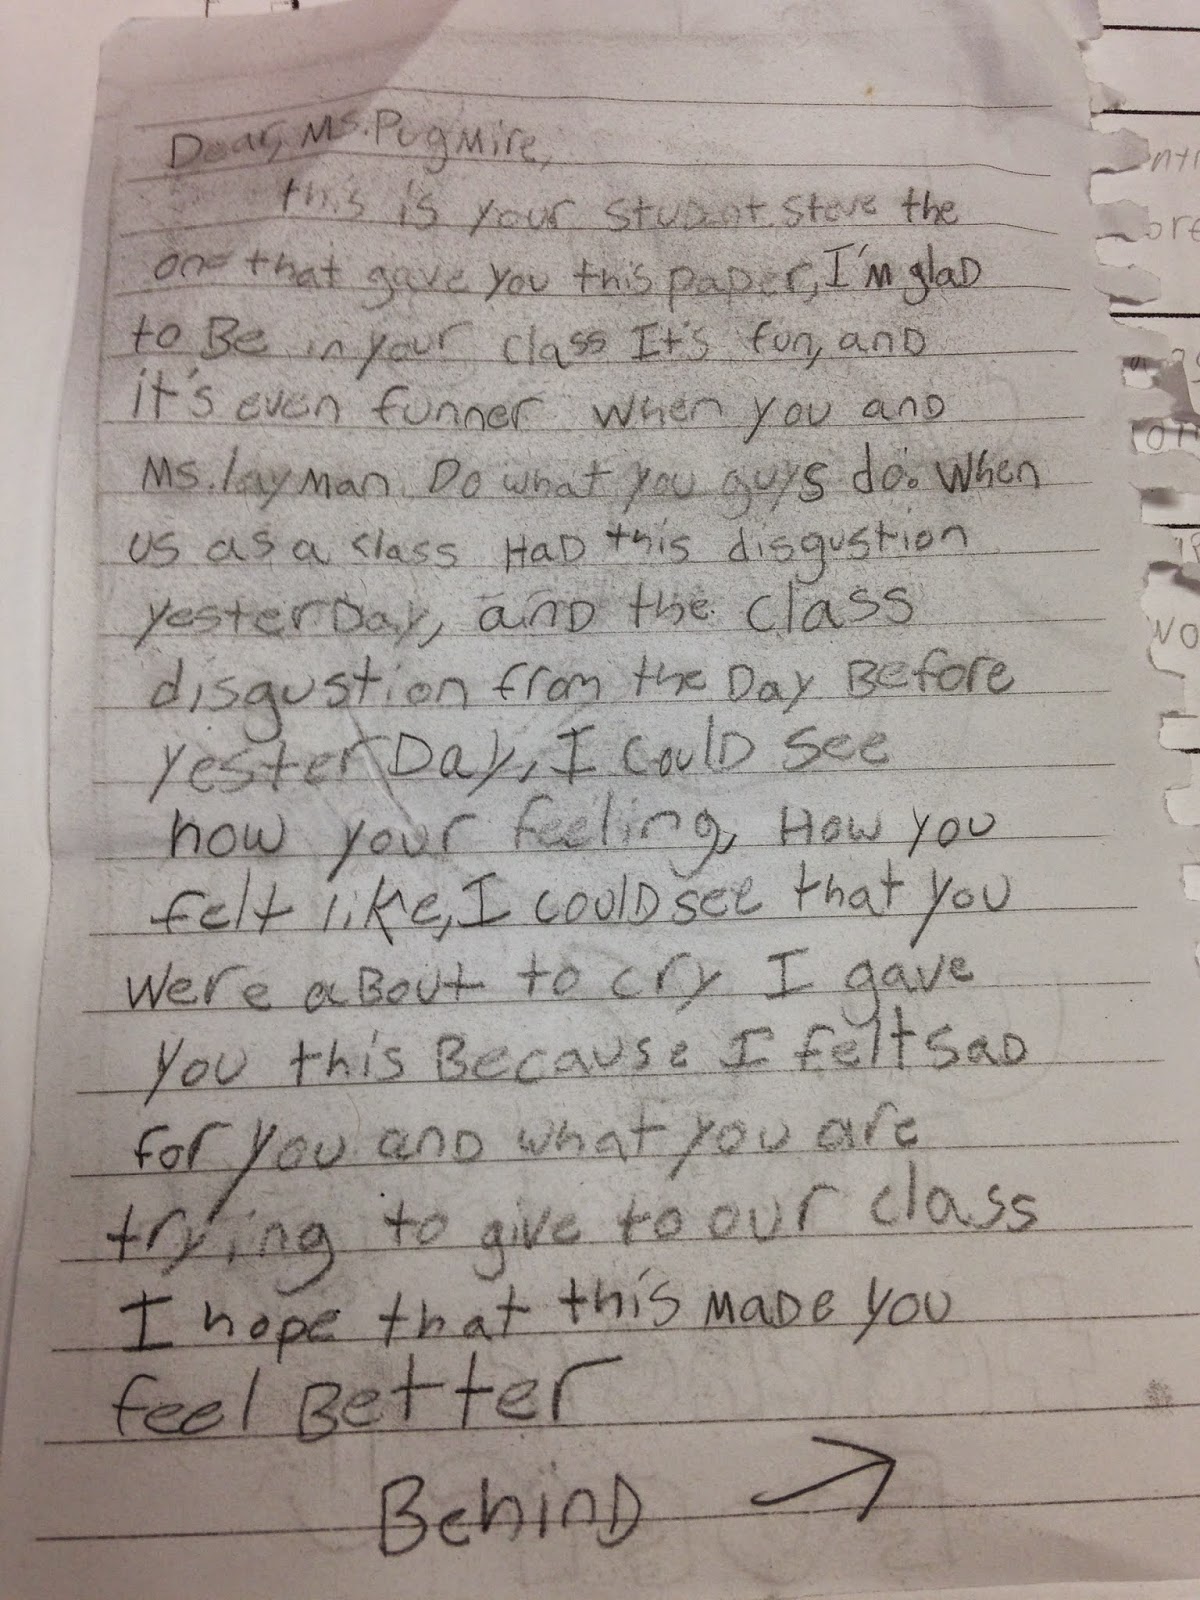 Dear, Ms. Pugmire,
this is your student. Steve the
one that gave you this paper, I'm glaD
to Be in your class It's fun, anD
it's even funner when you anD
Ms. layman Do what you guys do. When
us as a class HaD this disgustion
yesterDay, anD the class
disgustion from the Day Before
yesterDay, I coulD see
how your feeling, How you
felt like, I coulD see that you
were aBout to cry I gave
you this Because I felt saD
for you anD what you are
trying to give to our class
I hope that this maDe you
feel Better
BehinD →